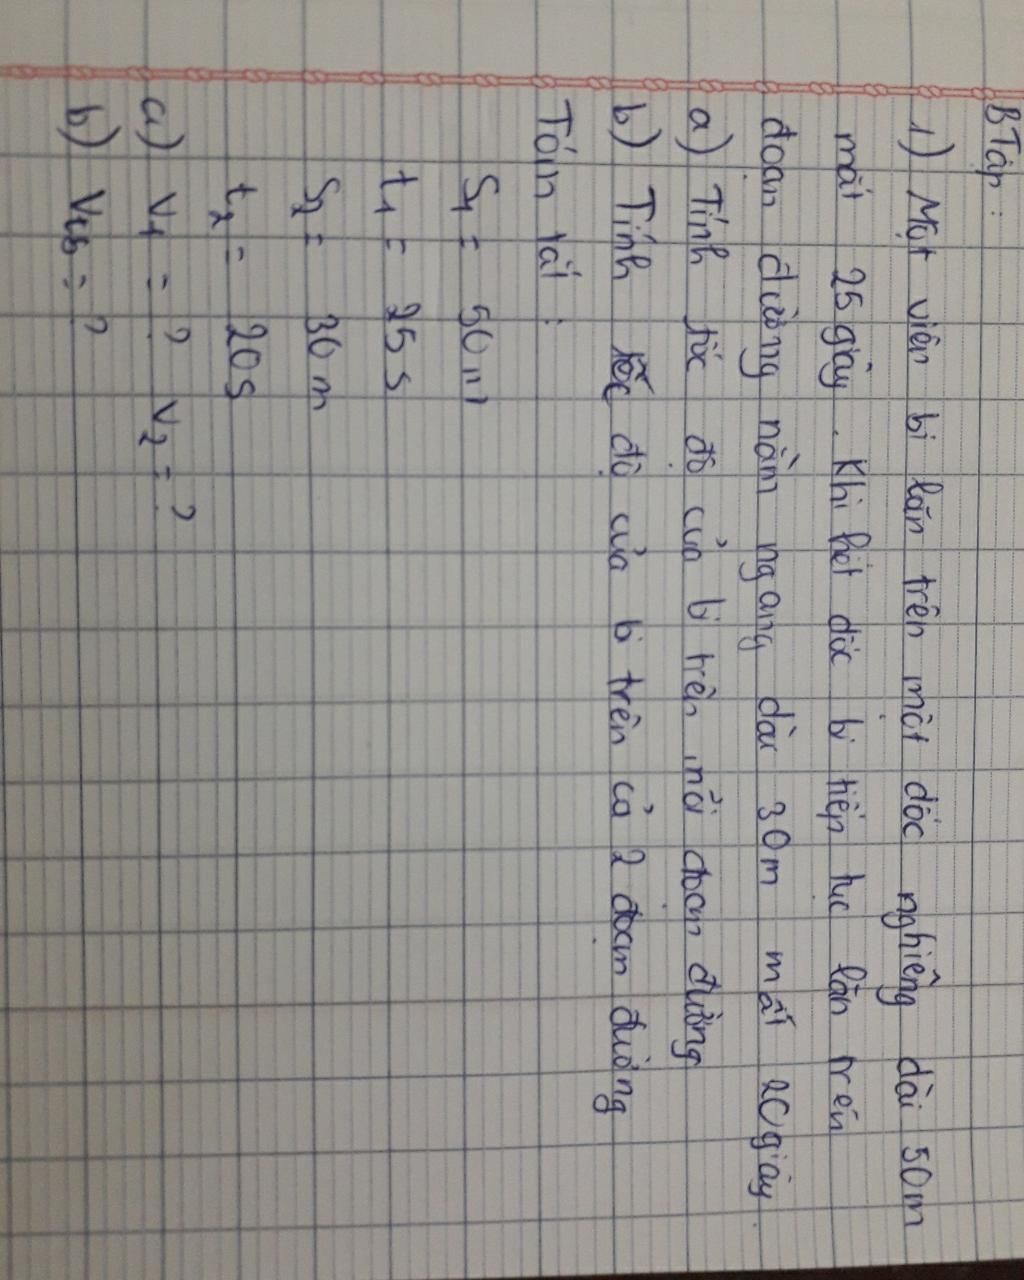 BTập:
1) Một viên bi lăn trên một dốc nghiêng dài 50m
mất 25 giây. Khi hết dốc bi tiếp tục lăn trên
đoạn đường nằm ngang dài 30m mất 20 giây.
a) Tính tốc độ của bi trên mỗi đoạn đường
b) Tính tốc độ của bi trên cả 2 đoạn đường
Tóm tắt :
S1 = 50m
t1 = 25s
S2 = 30m
t2 = 20s
a) v1 = ? v2 = ?
b) vtb = ?